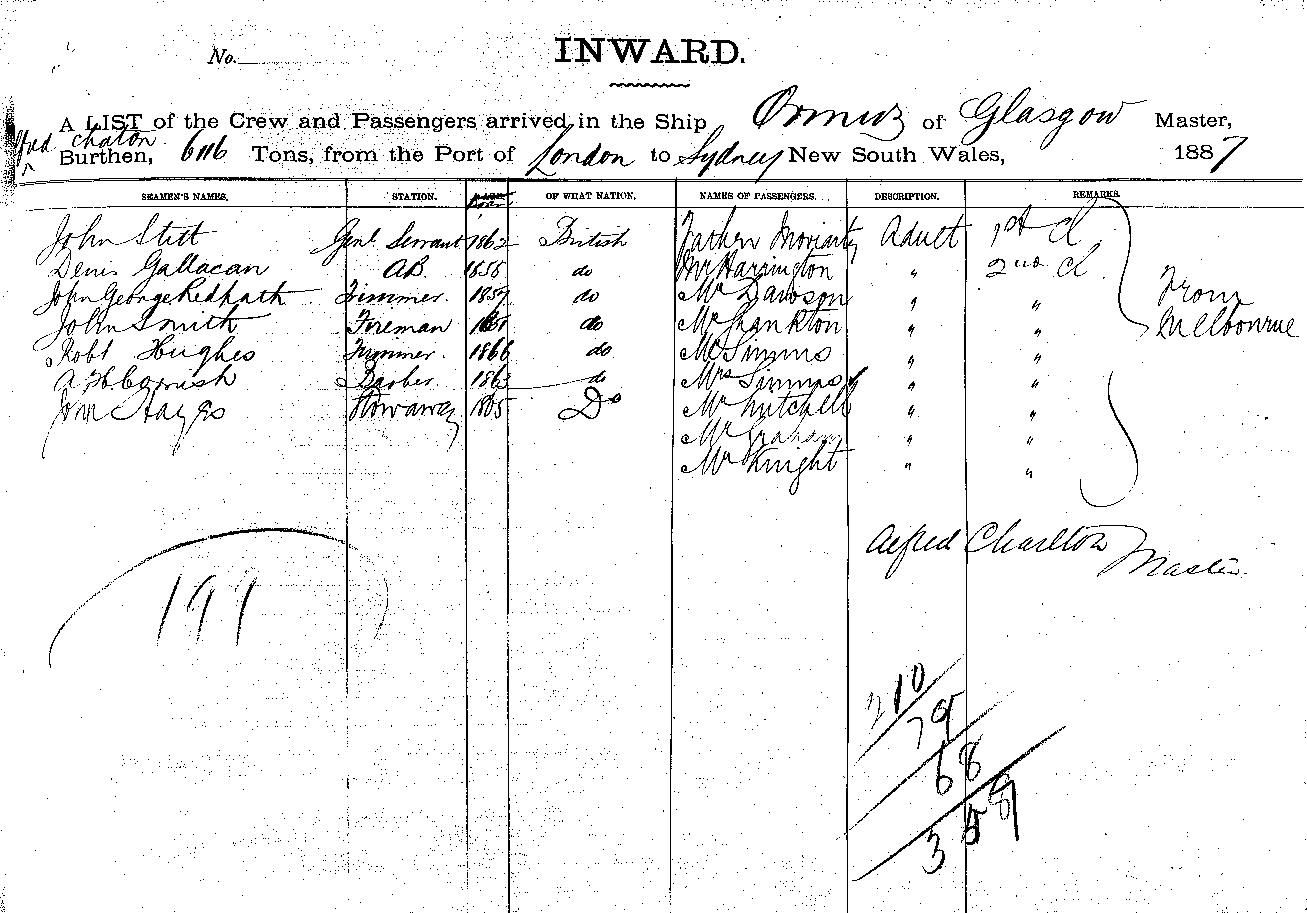 No.
INWARD.
A LIST of the Crew and Passengers arrived in the Ship Ormuz of Glasgow Master,
Burthen, 6116 Tons, from the Port of London to Sydney New South Wales, 1887
SEAMEN'S NAMES. STATION. OF WHAT NATION. NAMES OF PASSENGERS. DESCRIPTION. REMARKS.
John Stitt Genl Servant 1862 British Father Moriarty Adult 1st Cl
Denis Gallacan AB do Mr Harrington " 2nd Cl
John George Redpath Trimmer 1859 do Mr Dawson " " From
John Smith Fireman do Mr Frankton " " Melbourne
Robt Hughes Trimmer 1866 do Mr Simms " "
Barber 1863 do Mrs Simms " "
Stowaway Do Mr Mitchell " "
Mr Graham " "
Mr Knight " "
Alfred Charlton Master
199
210
79
68